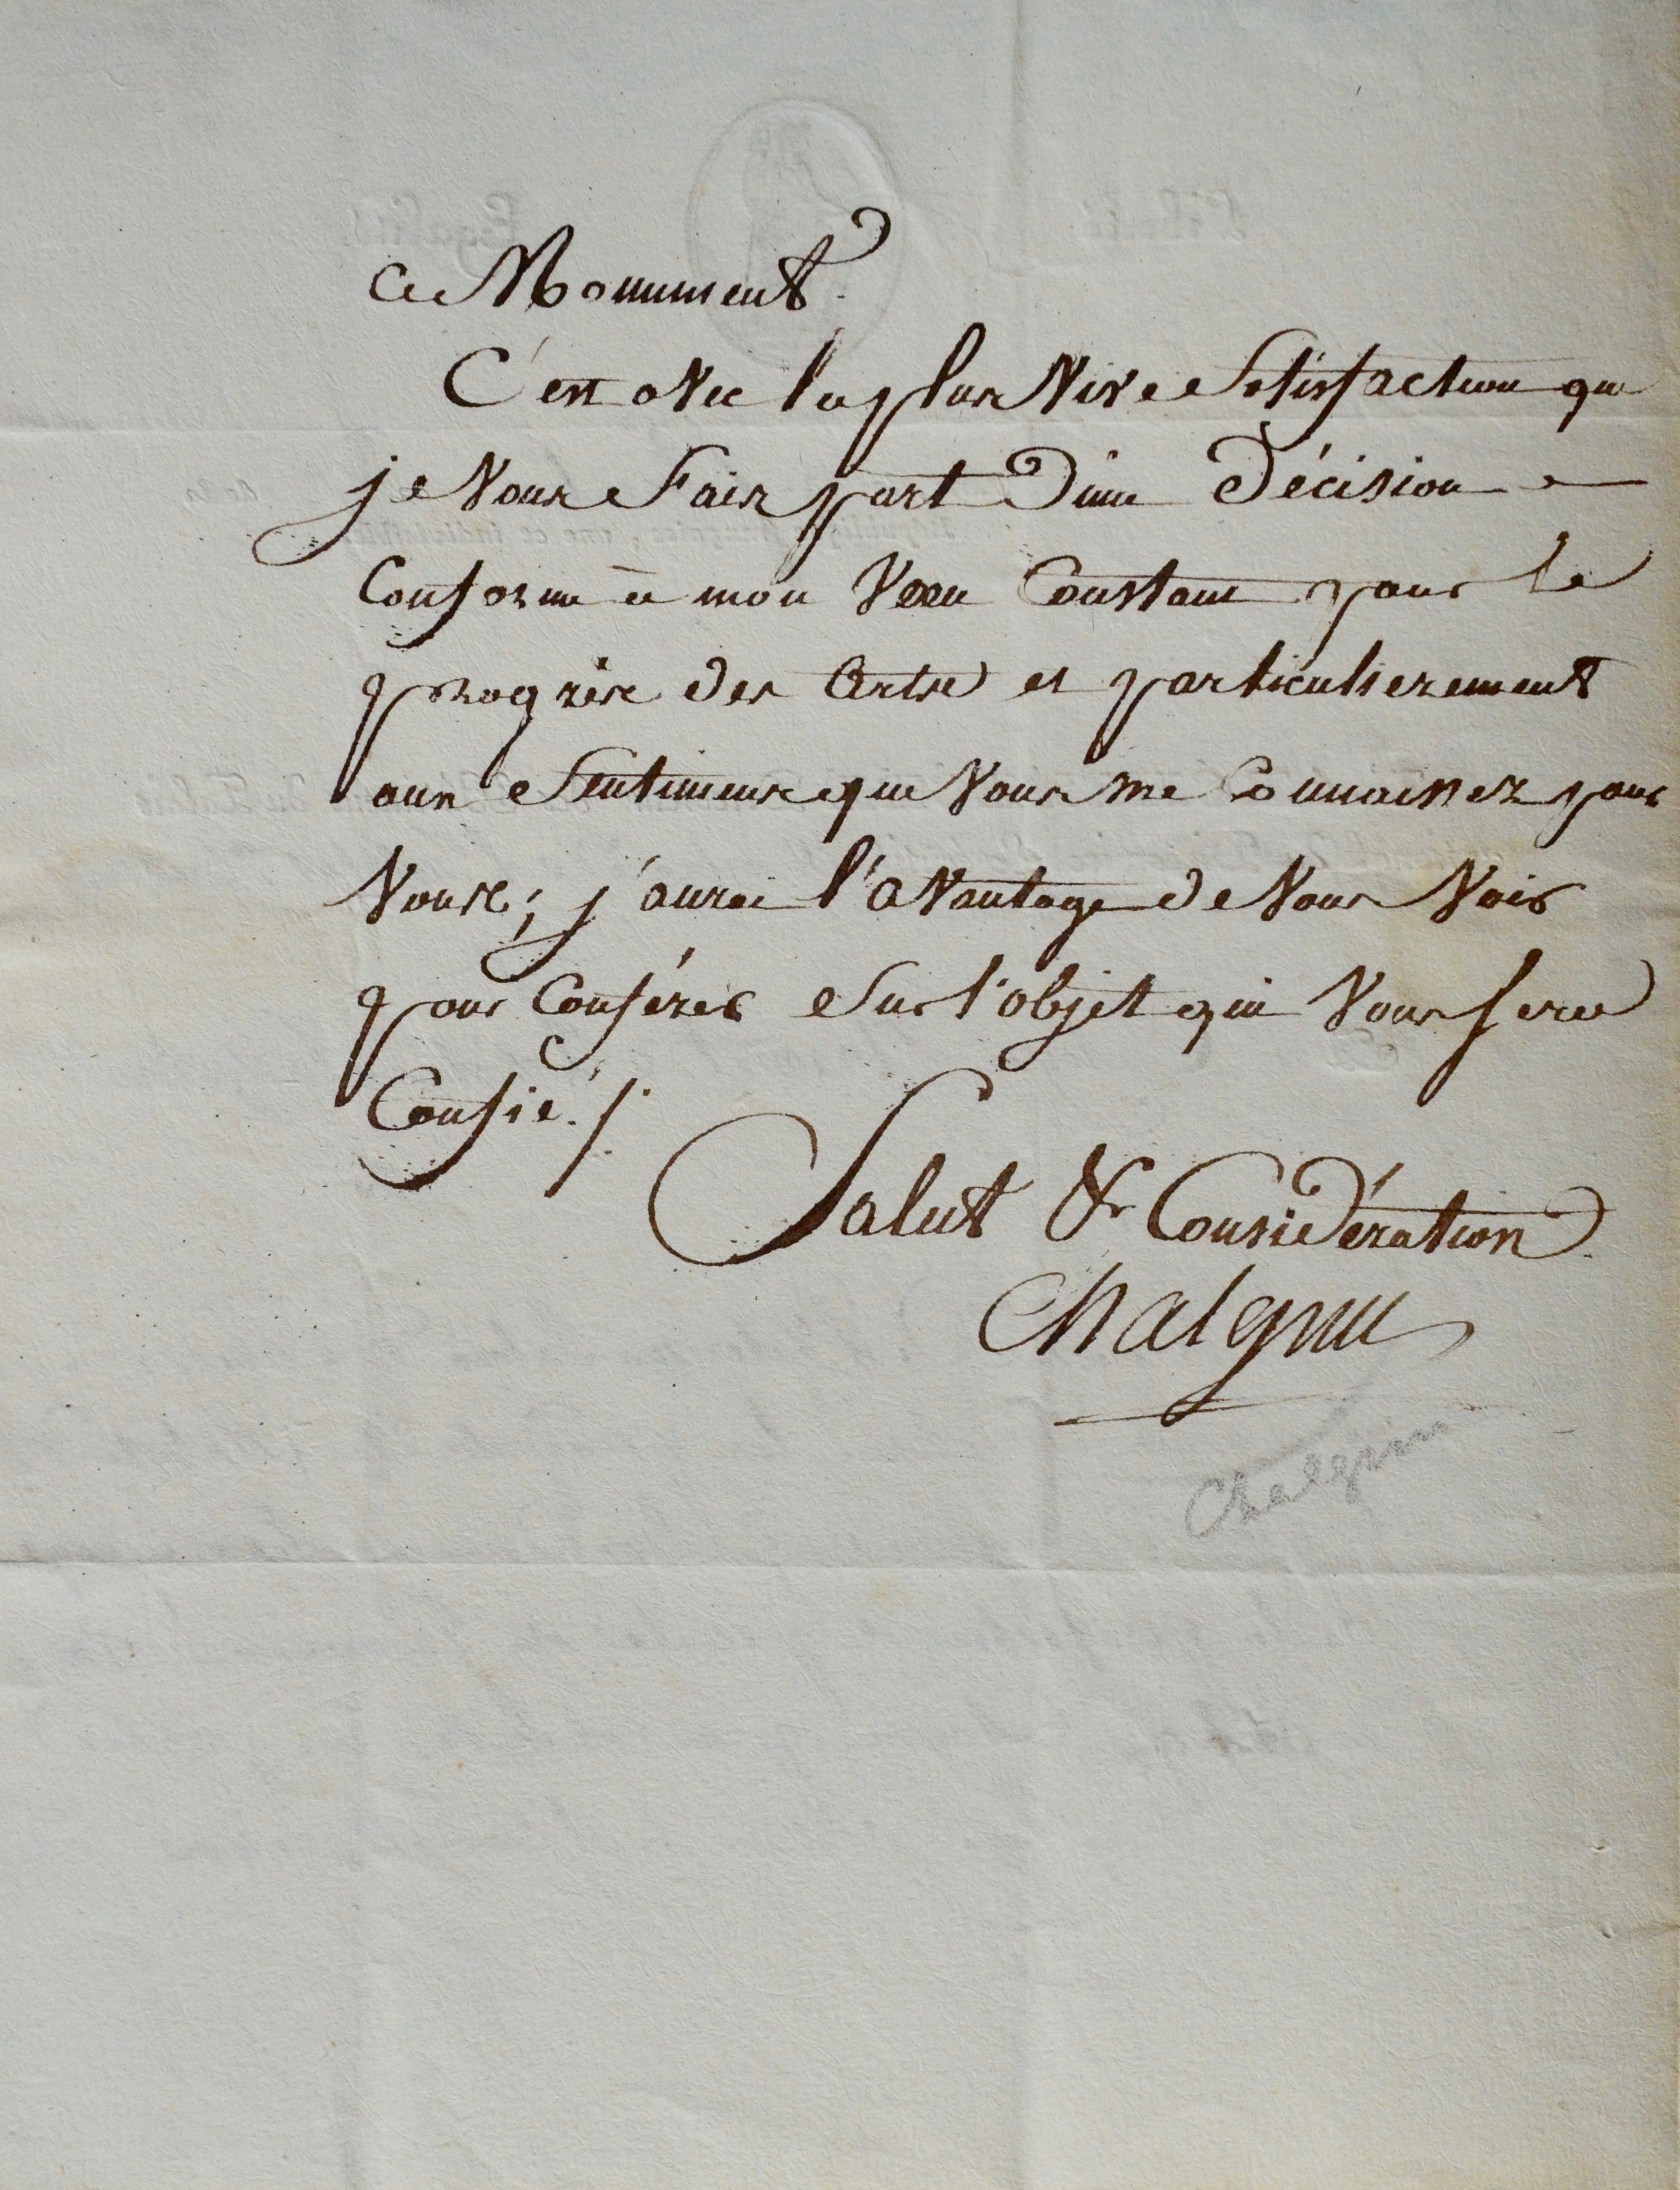 ce Monument.
C'est avec la plus vive Satisfaction que
je vous Fais part d'une Décision
Conforme à mon Vœu Constant pour le
progrès des Arts et particulierement
aux Sentimens que vous me Connaissez pour
vous; j'aurai l'avantage de vous Voir
pour Conférer Sur l'objet qui vous sera
Confié ./.
Salut & Considération
Chalgrin
Chalgrin